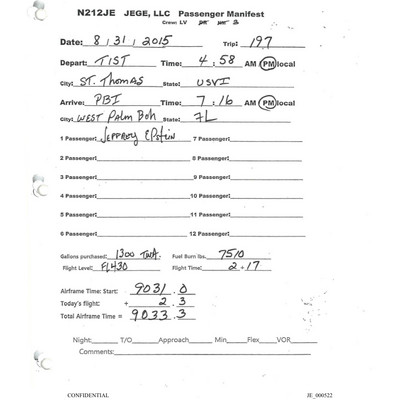 N212JE JEGE, LLC Passenger Manifest
Crew: LV
Date: 8 / 31 / 2015 Trip: 197
Depart: TIST Time: 4 : 58 AM PM local
City: ST. Thomas State: USVI
Arrive: PBI Time: 7 : 16 AM PM local
City: West Palm Bch State: FL
1 Passenger: Jeffrey Epstein 7 Passenger:
2 Passenger: 8 Passenger:
3 Passenger: 9 Passenger:
4 Passenger: 10 Passenger:
5 Passenger: 11 Passenger:
6 Passenger: 12 Passenger:
Gallons purchased: 1300 Fuel Burn lbs. 7510
Flight Level: FL430 Flight Time: 2 + 17
Airframe Time: Start: 9031 . 0
Today's flight: + 2 . 3
Total Airframe Time = 9033 . 3
Night: T/O Approach Min Flex VOR
Comments:
CONFIDENTIAL JE_000522